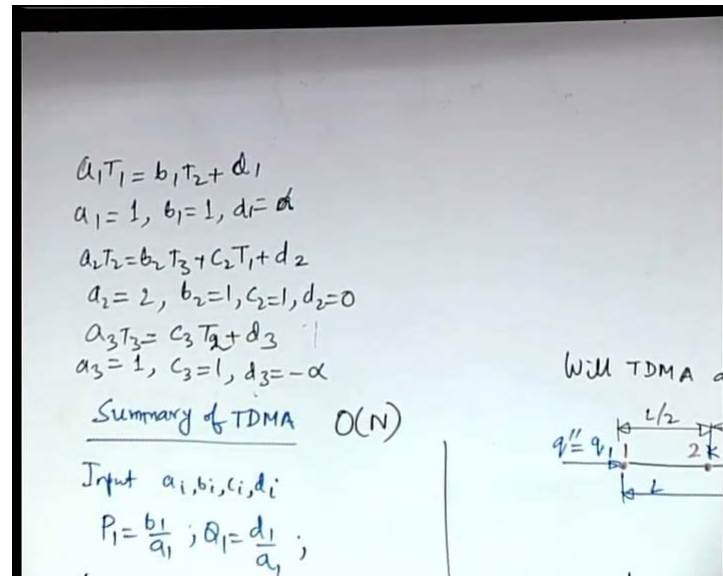 a₁T₁ = b₁T₂ + d₁
a₁ = 1, b₁ = 1, d₁ = α
a₂T₂ = b₂T₃ + C₂T₁ + d₂
a₂ = 2, b₂ = 1, C₂ = 1, d₂ = 0
a₃T₃ = C₃T₂ + d₃
a₃ = 1, C₃ = 1, d₃ = -α
Summary of TDMA O(N)
Input aᵢ, bᵢ, cᵢ, dᵢ
P₁ = b₁/a₁ ; Q₁ = d₁/a₁ ;
Will TDMA
L/2
q'' = q₁ 1 2 k
L